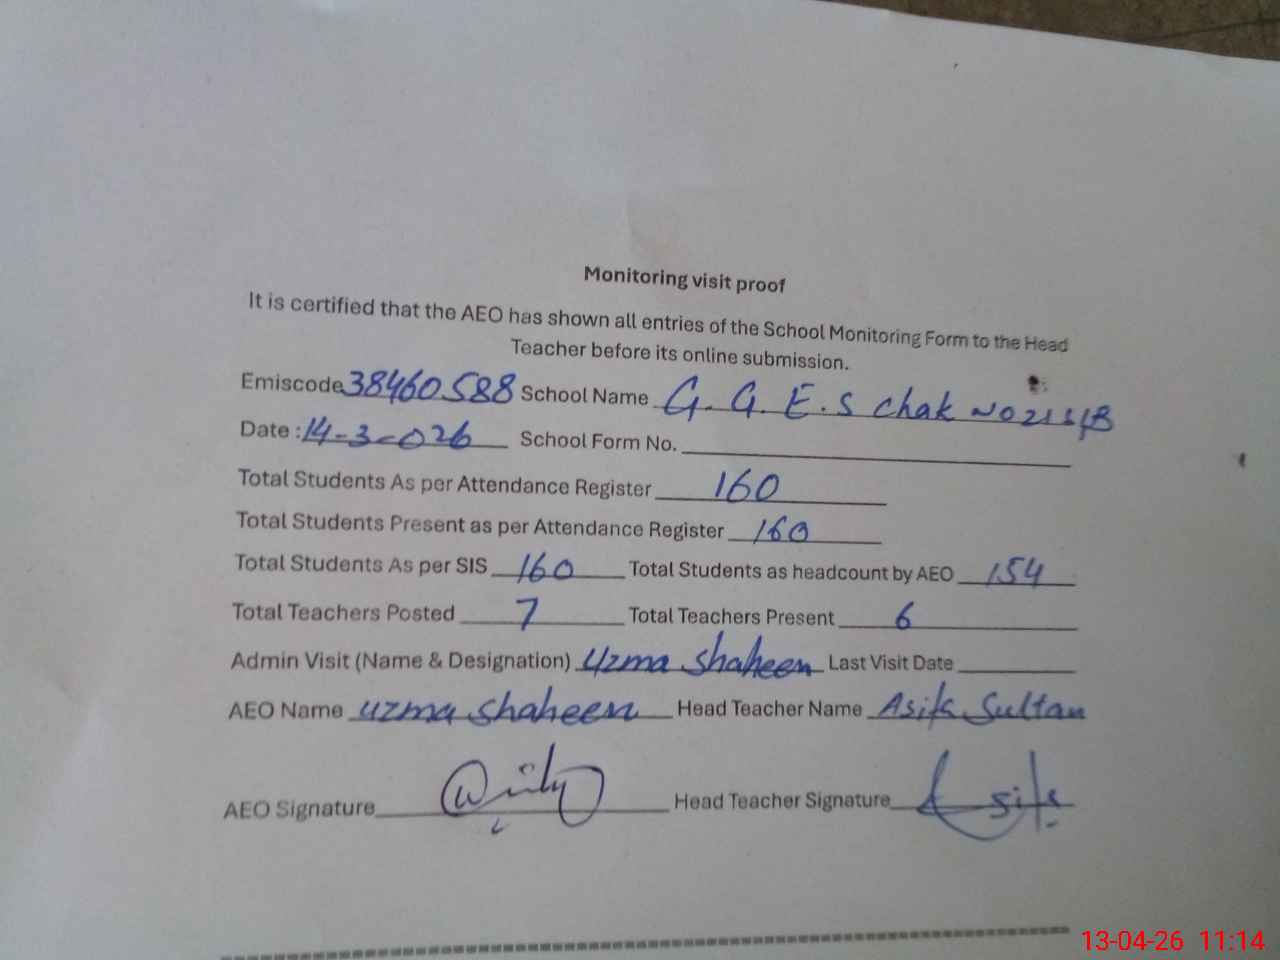 Monitoring visit proof
It is certified that the AEO has shown all entries of the School Monitoring Form to the Head
Teacher before its online submission.
Emiscode 38460588 School Name G. G. E. S chak NO 21 SB
Date : 14-3-026 School Form No.
Total Students As per Attendance Register 160
Total Students Present as per Attendance Register 160
Total Students As per SIS 160 Total Students as headcount by AEO 154
Total Teachers Posted 7 Total Teachers Present 6
Admin Visit (Name & Designation) Uzma Shaheen Last Visit Date
AEO Name uzma Shaheen Head Teacher Name Asifa Sultan
AEO Signature Head Teacher Signature
13-04-26 11:14